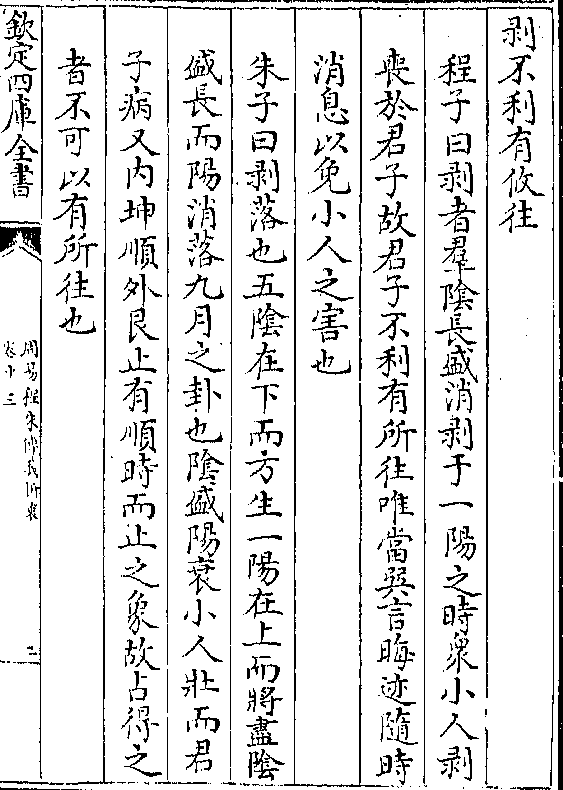 剥不利有攸往
程子曰剥者羣隂長盛消剥于一陽之時衆小人剥
喪於君子故君子不利有所往唯當巽言晦迹隨時
消息以免小人之害也
朱子曰剥落也五隂在下而方生一陽在上而將盡隂
盛長而陽消落九月之卦也隂盛陽衰小人壯而君
子病又内坤順外艮止有順時而止之象故占得之
者不可以有所往也
欽定四庫全書
周易程朱傳義折衷
卷十三
二